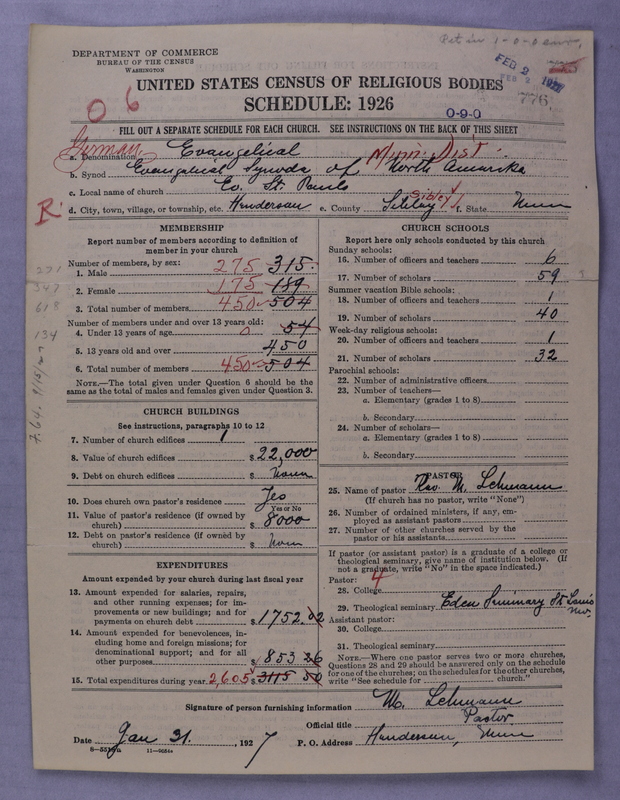 Pet in 1-0-0 env.
DEPARTMENT OF COMMERCE
BUREAU OF THE CENSUS
WASHINGTON
FEB 2 1928
FEB 2
776
UNITED STATES CENSUS OF RELIGIOUS BODIES
SCHEDULE: 1926
0 6
0-9-0
FILL OUT A SEPARATE SCHEDULE FOR EACH CHURCH. SEE INSTRUCTIONS ON THE BACK OF THIS SHEET
German
a. Denomination Evangelical Minn. Dist.
b. Synod Evangelical Synode of North Amerika
c. Local name of church Ev. St. Pauls
R
d. City, town, village, or township, etc. Henderson e. County Sibley f. State Minn
MEMBERSHIP
Report number of members according to definition of
member in your church
Number of members, by sex:
1. Male 275 315
2. Female 175 189
3. Total number of members 450 504
Number of members under and over 13 years old:
4. Under 13 years of age 0 54
5. 13 years old and over 450
6. Total number of members 450 504
NOTE.—The total given under Question 6 should be the
same as the total of males and females given under Question 3.
271
347
618
134
CHURCH BUILDINGS
See instructions, paragraphs 10 to 12
7. Number of church edifices 1
8. Value of church edifices $ 22,000
9. Debt on church edifices $ None
10. Does church own pastor's residence Yes
Yes or No
11. Value of pastor's residence (if owned by
church) $ 8000
12. Debt on pastor's residence (if owned by
church) $ None
EXPENDITURES
Amount expended by your church during last fiscal year
13. Amount expended for salaries, repairs,
and other running expenses; for im-
provements or new buildings; and for
payments on church debt $ 1752.02
14. Amount expended for benevolences, in-
cluding home and foreign missions; for
denominational support; and for all
other purposes $ 853 26
15. Total expenditures during year 2,605 $ 3115 50
CHURCH SCHOOLS
Report here only schools conducted by this church
Sunday schools:
16. Number of officers and teachers 6
17. Number of scholars 59
Summer vacation Bible schools:
18. Number of officers and teachers 1
19. Number of scholars 40
Week-day religious schools:
20. Number of officers and teachers 1
21. Number of scholars 32
Parochial schools:
22. Number of administrative officers
23. Number of teachers—
a. Elementary (grades 1 to 8)
b. Secondary
24. Number of scholars—
a. Elementary (grades 1 to 8)
b. Secondary
PASTOR
25. Name of pastor Rev. M. Lehmann
(If church has no pastor, write "None")
26. Number of ordained ministers, if any, em-
ployed as assistant pastors
27. Number of other churches served by the
pastor or his assistants
If pastor (or assistant pastor) is a graduate of a college or
theological seminary, give name of institution below. (If
not a graduate, write "No" in the space indicated.)
Pastor: 4
28. College
29. Theological seminary Eden Seminary St Louis
Mo.
Assistant pastor:
30. College
31. Theological seminary
NOTE.—Where one pastor serves two or more churches,
Questions 28 and 29 should be answered only on the schedule
for one of the churches; on the schedules for the other churches,
write "See schedule for church."
Signature of person furnishing information M. Lehmann
Official title Pastor
Date Jan 31, 1927 P. O. Address Henderson, Minn